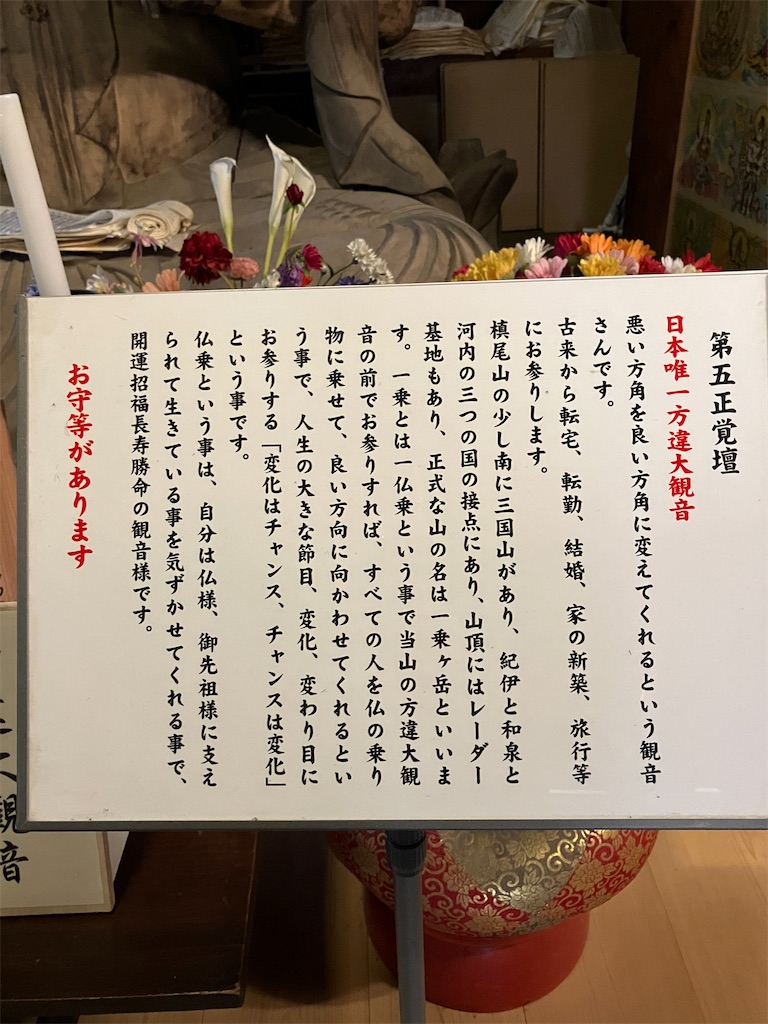 第五正覚壇
日本唯一方違大観音
悪い方角を良い方角に変えてくれるという観音
さんです。
古来から転宅、転勤、結婚、家の新築、旅行等
にお参りします。
槙尾山の少し南に三国山があり、紀伊と和泉と
河内の三つの国の接点にあり、山頂にはレーダー
基地もあり、正式な山の名は一乗ヶ岳といいま
す。一乗とは一仏乗という事で当山の方違大観
音の前でお参りすれば、すべての人を仏の乗り
物に乗せて、良い方向に向かわせてくれるとい
う事で、人生の大きな節目、変化、変わり目に
お参りする「変化はチャンス、チャンスは変化」
という事です。
仏乗という事は、自分は仏様、御先祖様に支え
られて生きている事を気ずかせてくれる事で、
開運招福長寿勝命の観音様です。
お守等があります
大観音